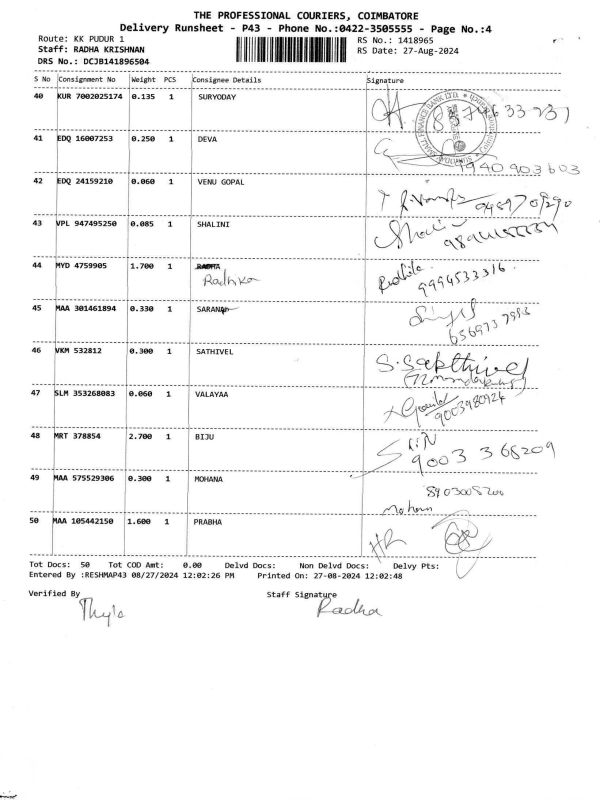 THE PROFESSIONAL COURIERS, COIMBATORE
Delivery Runsheet - P43 - Phone No.:0422-3505555 - Page No.:4
Route: KK PUDUR 1 RS No.: 1418965
Staff: RADHA KRISHNAN RS Date: 27-Aug-2024
DRS No.: DCJB141896504
S No Consignment No Weight PCS Consignee Details Signature
40 KUR 7002025174 0.135 1 SURYODAY
41 EDQ 16007253 0.250 1 DEVA
9940903603
42 EDQ 24159210 0.060 1 VENU GOPAL
43 VPL 947495250 0.085 1 SHALINI
44 MYD 4759905 1.700 1 RADHA Radhika
9994533316
45 MAA 301461894 0.330 1 SARANAP
46 VKM 532812 0.300 1 SATHIVEL S.Sakthivel
47 SLM 353268083 0.060 1 VALAYAA
9003980924
48 MRT 378854 2.700 1 BIJU
9003 368209
49 MAA 575529306 0.300 1 MOHANA
8903008200
Mohana
50 MAA 105442150 1.600 1 PRABHA
Tot Docs: 50 Tot COD Amt: 0.00 Delvd Docs: Non Delvd Docs: Delvy Pts:
Entered By :RESHMAP43 08/27/2024 12:02:26 PM Printed On: 27-08-2024 12:02:48
Verified By Staff Signature
Radha